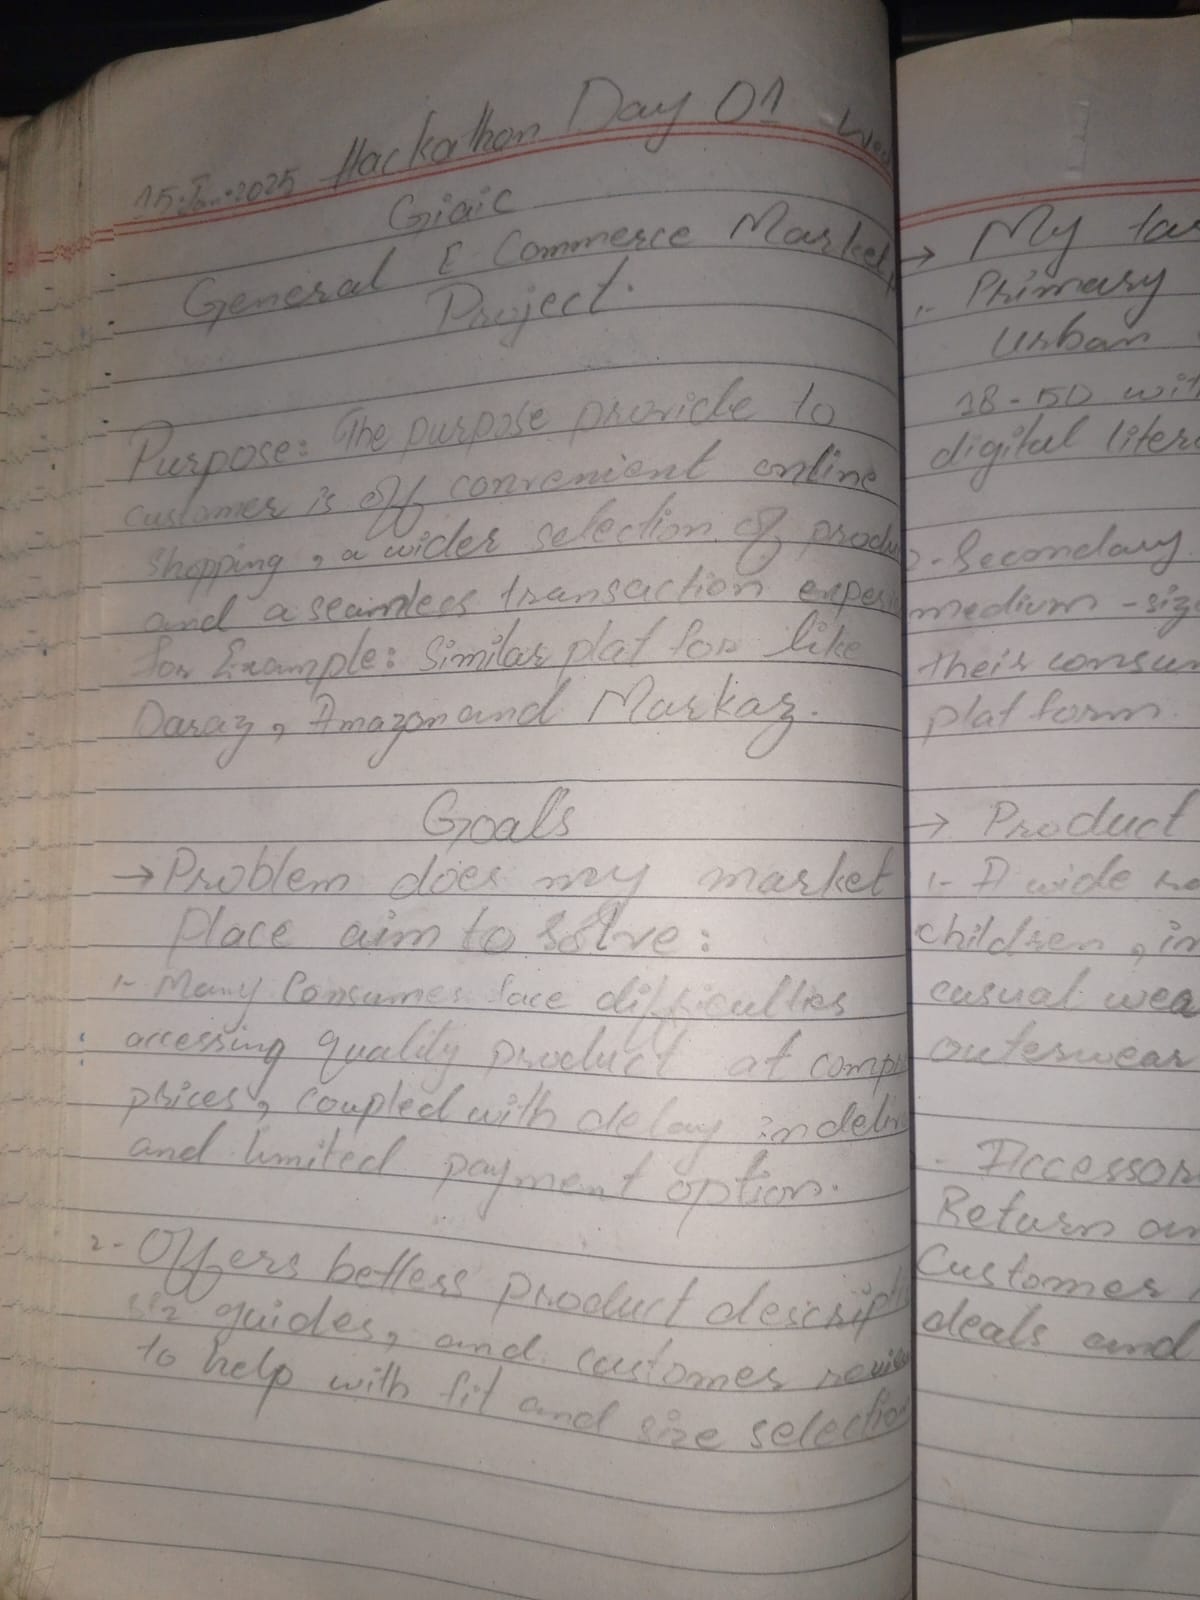 Hackathon Day 01 Wed
15-Jan-2025
Giaic
General E Commerce Market
Project.
Purpose: The purpose provide to
customer is off convenient online
shopping, a wider selection of produ
and a seamless transaction exper
for Example: Similar plat for like
Daraz, Amazon and Markaz.
Goals
→ Problem does my market
place aim to solve:
1- Many Consumer face difficulties
accessing quality product at comp
prices, coupled with delay in deliv
and limited payment option.
2- Offers betters product descript
siz guides, and customer review
to help with fit and size selection
→ My tar
1- Primary
Urban
18-50 wit
digital liter
2- Secondary
medium-siz
their consum
platform.
→ Product
1- A wide ra
children, in
casual wea
outerwear
- Accessor
Return an
Customer
deals and